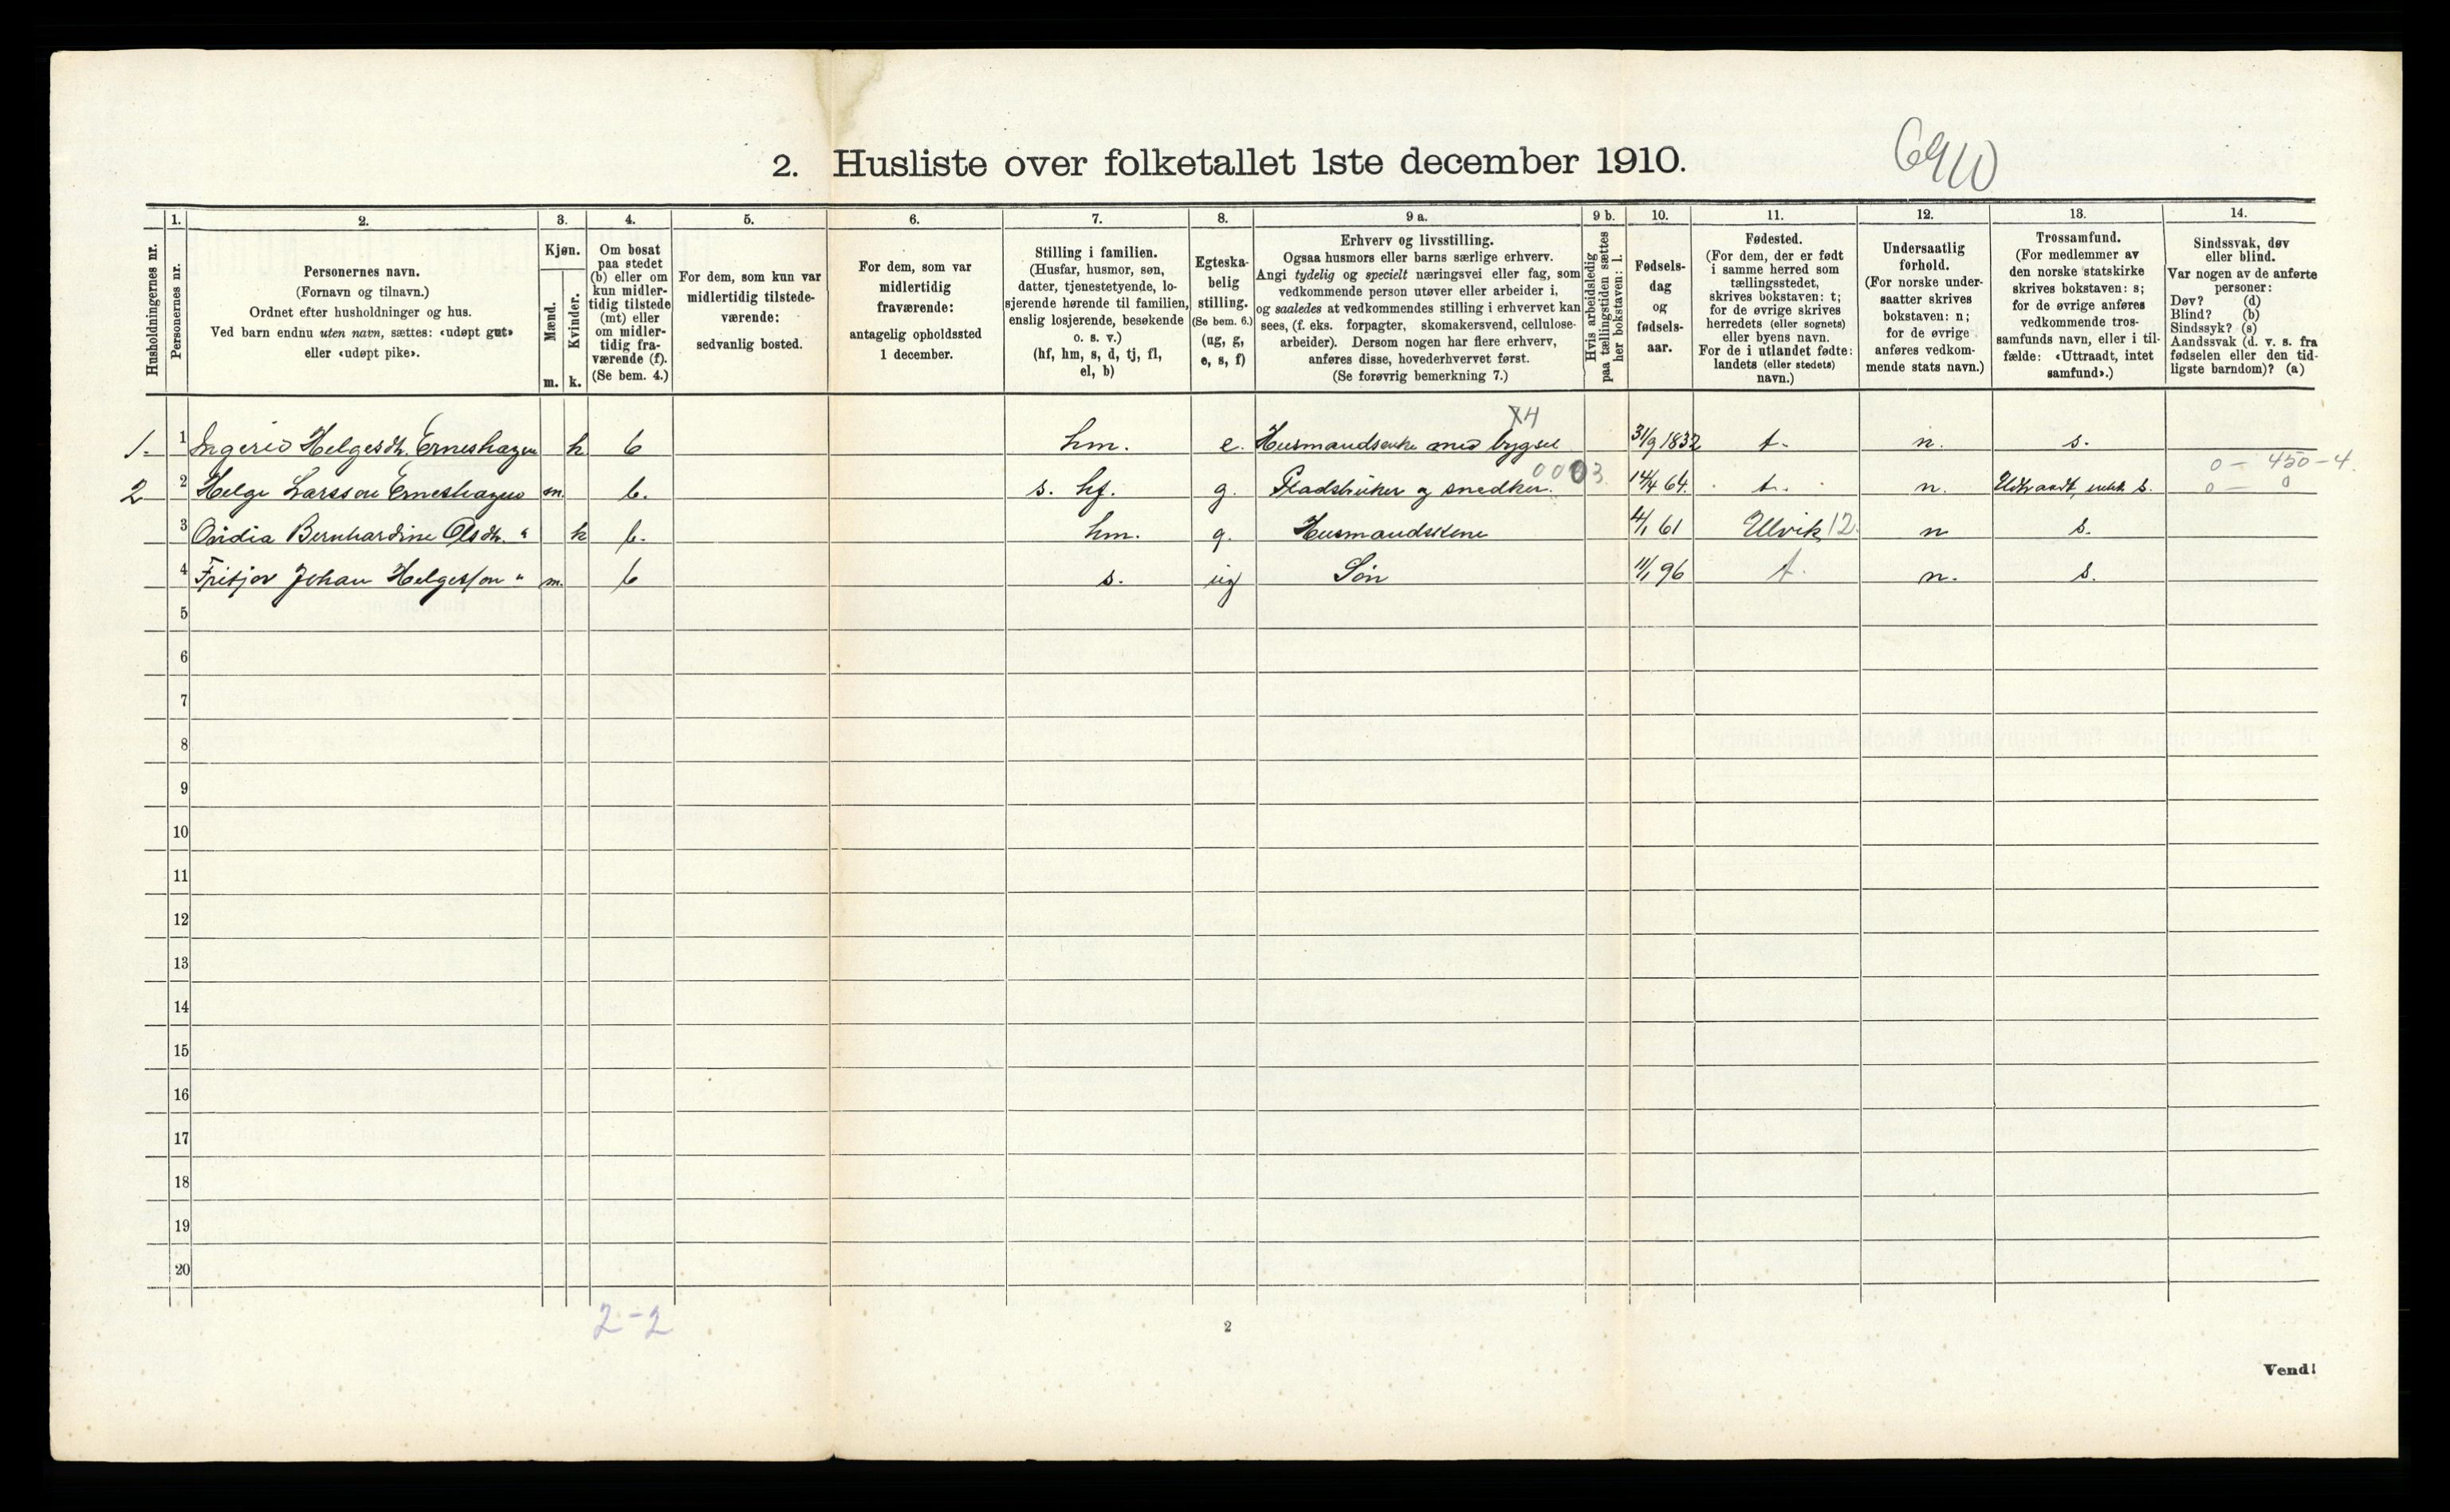 2. Husliste over folketallet 1ste december 1910.
6910
Husholdningernes nr.
1.
Personernes nr.
2.
Personernes navn.
(Fornavn og tilnavn.)
Ordnet efter husholdninger og hus.
Ved barn endnu uten navn, sættes: «udøpt gut»
eller «udøpt pike».
3.
Kjøn.
Mænd.
Kvinder.
m.
k.
4.
Om bosat
paa stedet
(b) eller om
kun midler-
tidig tilstede
(mt) eller
om midler-
tidig fra-
værende (f).
(Se bem. 4.)
5.
For dem, som kun var
midlertidig tilstede-
værende:
sedvanlig bosted.
6.
For dem, som var
midlertidig
fraværende:
antagelig opholdssted
1 december.
7.
Stilling i familien.
(Husfar, husmor, søn,
datter, tjenestetyende, lo-
sjerende hørende til familien,
enslig losjerende, besøkende
o. s. v.)
(hf, hm, s, d, tj, fl,
el, b)
8.
Egteska-
belig
stilling.
(Se bem. 6.)
(ug, g,
e, s, f)
9 a.
Erhverv og livsstilling.
Ogsaa husmors eller barns særlige erhverv.
Angi tydelig og specielt næringsvei eller fag, som
vedkommende person utøver eller arbeider i,
og saaledes at vedkommendes stilling i erhvervet kan
sees, (f. eks. forpagter, skomakersvend, cellulose-
arbeider). Dersom nogen har flere erhverv,
anføres disse, hovederhvervet først.
(Se forøvrig bemerkning 7.)
9 b.
Hvis arbeidsledig
paa tællingstiden sættes
her bokstaven: l.
10.
Fødsels-
dag
og
fødsels-
aar.
11.
Fødested.
(For dem, der er født
i samme herred som
tællingsstedet,
skrives bokstaven: t;
for de øvrige skrives
herredets (eller sognets)
eller byens navn.
For de i utlandet fødte:
landets (eller stedets)
navn.)
12.
Undersaatlig
forhold.
(For norske under-
saatter skrives
bokstaven: n;
for de øvrige
anføres vedkom-
mende stats navn.)
13.
Trossamfund.
(For medlemmer av
den norske statskirke
skrives bokstaven: s;
for de øvrige anføres
vedkommende tros-
samfunds navn, eller i til-
fælde: «Uttraadt, intet
samfund».)
14.
Sindssvak, døv
eller blind.
Var nogen av de anførte
personer:
Døv? (d)
Blind? (b)
Sindssyk? (s)
Aandssvak (d. v. s. fra
fødselen eller den tid-
ligste barndom)? (a)
X4
1. 1 Ingerid Helgesdt. Erneshagen k b hm. e. Husmandsenke med bygsel 31/9 1832 t. n. s.
0003 0 – 450-4.
2 2 Helge Larsson Erneshagen m. b. s. hf. g. Pladsbruker og snedker. 14/4 64. t. n. Udtraadt, intet s. 0 – 0
3 Ovidia Bernhardine Olsdt. " k b. hm. g. Husmandskone 4/1 61 Ulvik 12 n s.
4 Fritjov Johan Helgesson " m. b s. ug Søn 11/1 96 t. n. s.
5
6
7
8
9
10
11
12
13
14
15
16
17
18
19
20
2-2
2
Vend!